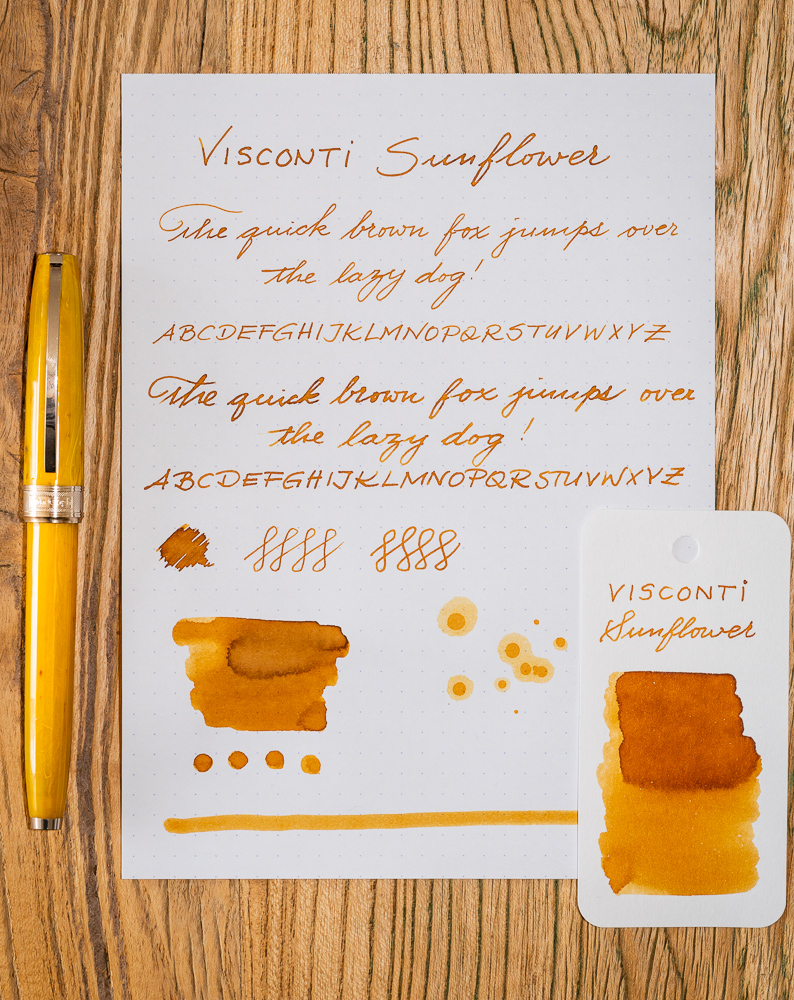 VISCONTi Sunflower
The quick brown fox jumps over
the lazy dog!
ABCDEFGHIJKLMNOPQRSTUVWXYZ
The quick brown fox jumps over
the lazy dog!
ABCDEFGHIJKLMNOPQRSTUVWXYZ
VISCONTi
Sunflower